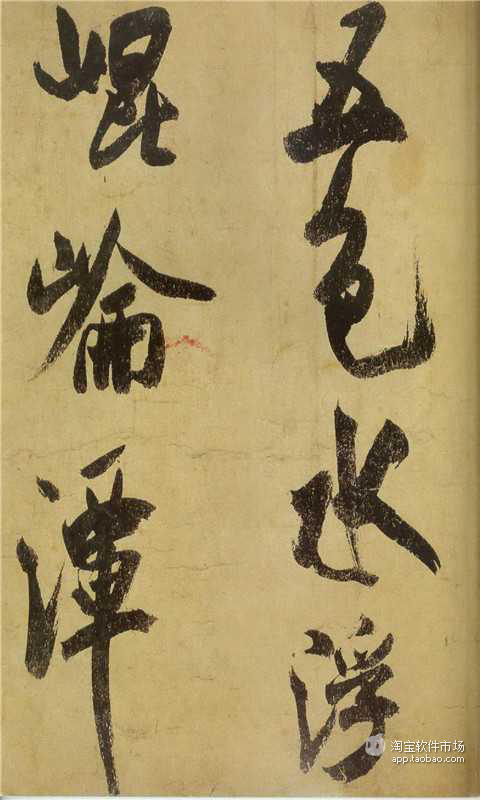 五色水浮
崐崘潭
淘宝软件市场
app.taobao.com